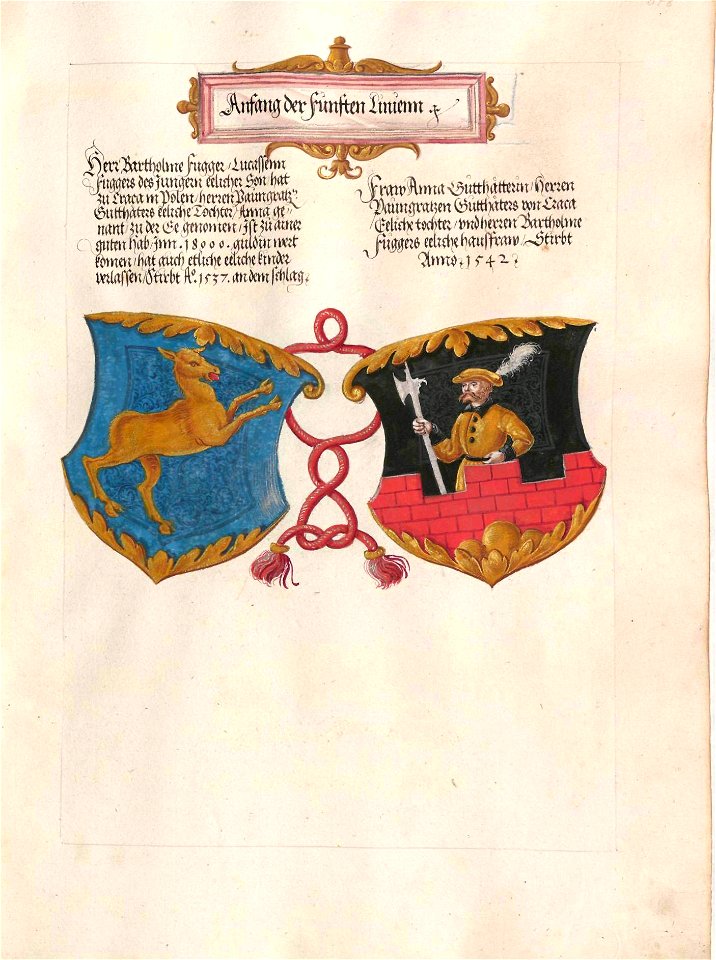 Anfang der Fünften Linienn
Herr Bartholme Fugger / Lucassenn
Fuggers des Jungern eelicher Son / hat
zu Craca in Polen / herren Paungratz
Gutthäters eeliche Tochter / Anna ge-
nant / zu der Ee genomen / Ist zu ainer
guten hab / Inn . 18000 . guldin wert
komen / hat auch etliche eeliche kinder
verlassen / Stirbt A°. 1537. an dem schlag.
Fraw Anna Gutthätterin / Herren
Paungratzen Gutthäters von Craca
Eeliche tochter / vnd herren Bartholme
Fuggers eeliche hausfraw / Stirbt
Anno . 1542 .